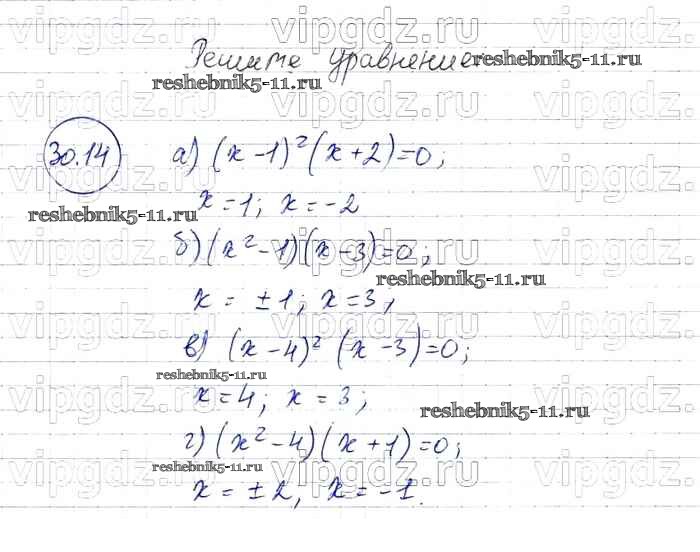 Решите уравнение
reshebnik5-11.ru
reshebnik5-11.ru
30.14 а) (x-1)²(x+2)=0;
reshebnik5-11.ru
x=1; x=-2
б) (x²-1)(x-3)=0;
reshebnik5-11.ru
x = ±1; x=3,
в) (x-4)² (x-3)=0;
reshebnik5-11.ru
x=4; x=3;
reshebnik5-11.ru
г) (x²-4)(x+1)=0;
reshebnik5-11.ru
x=±2, x=-1.
vipgdz.ru vipgdz.ru vipgdz.ru